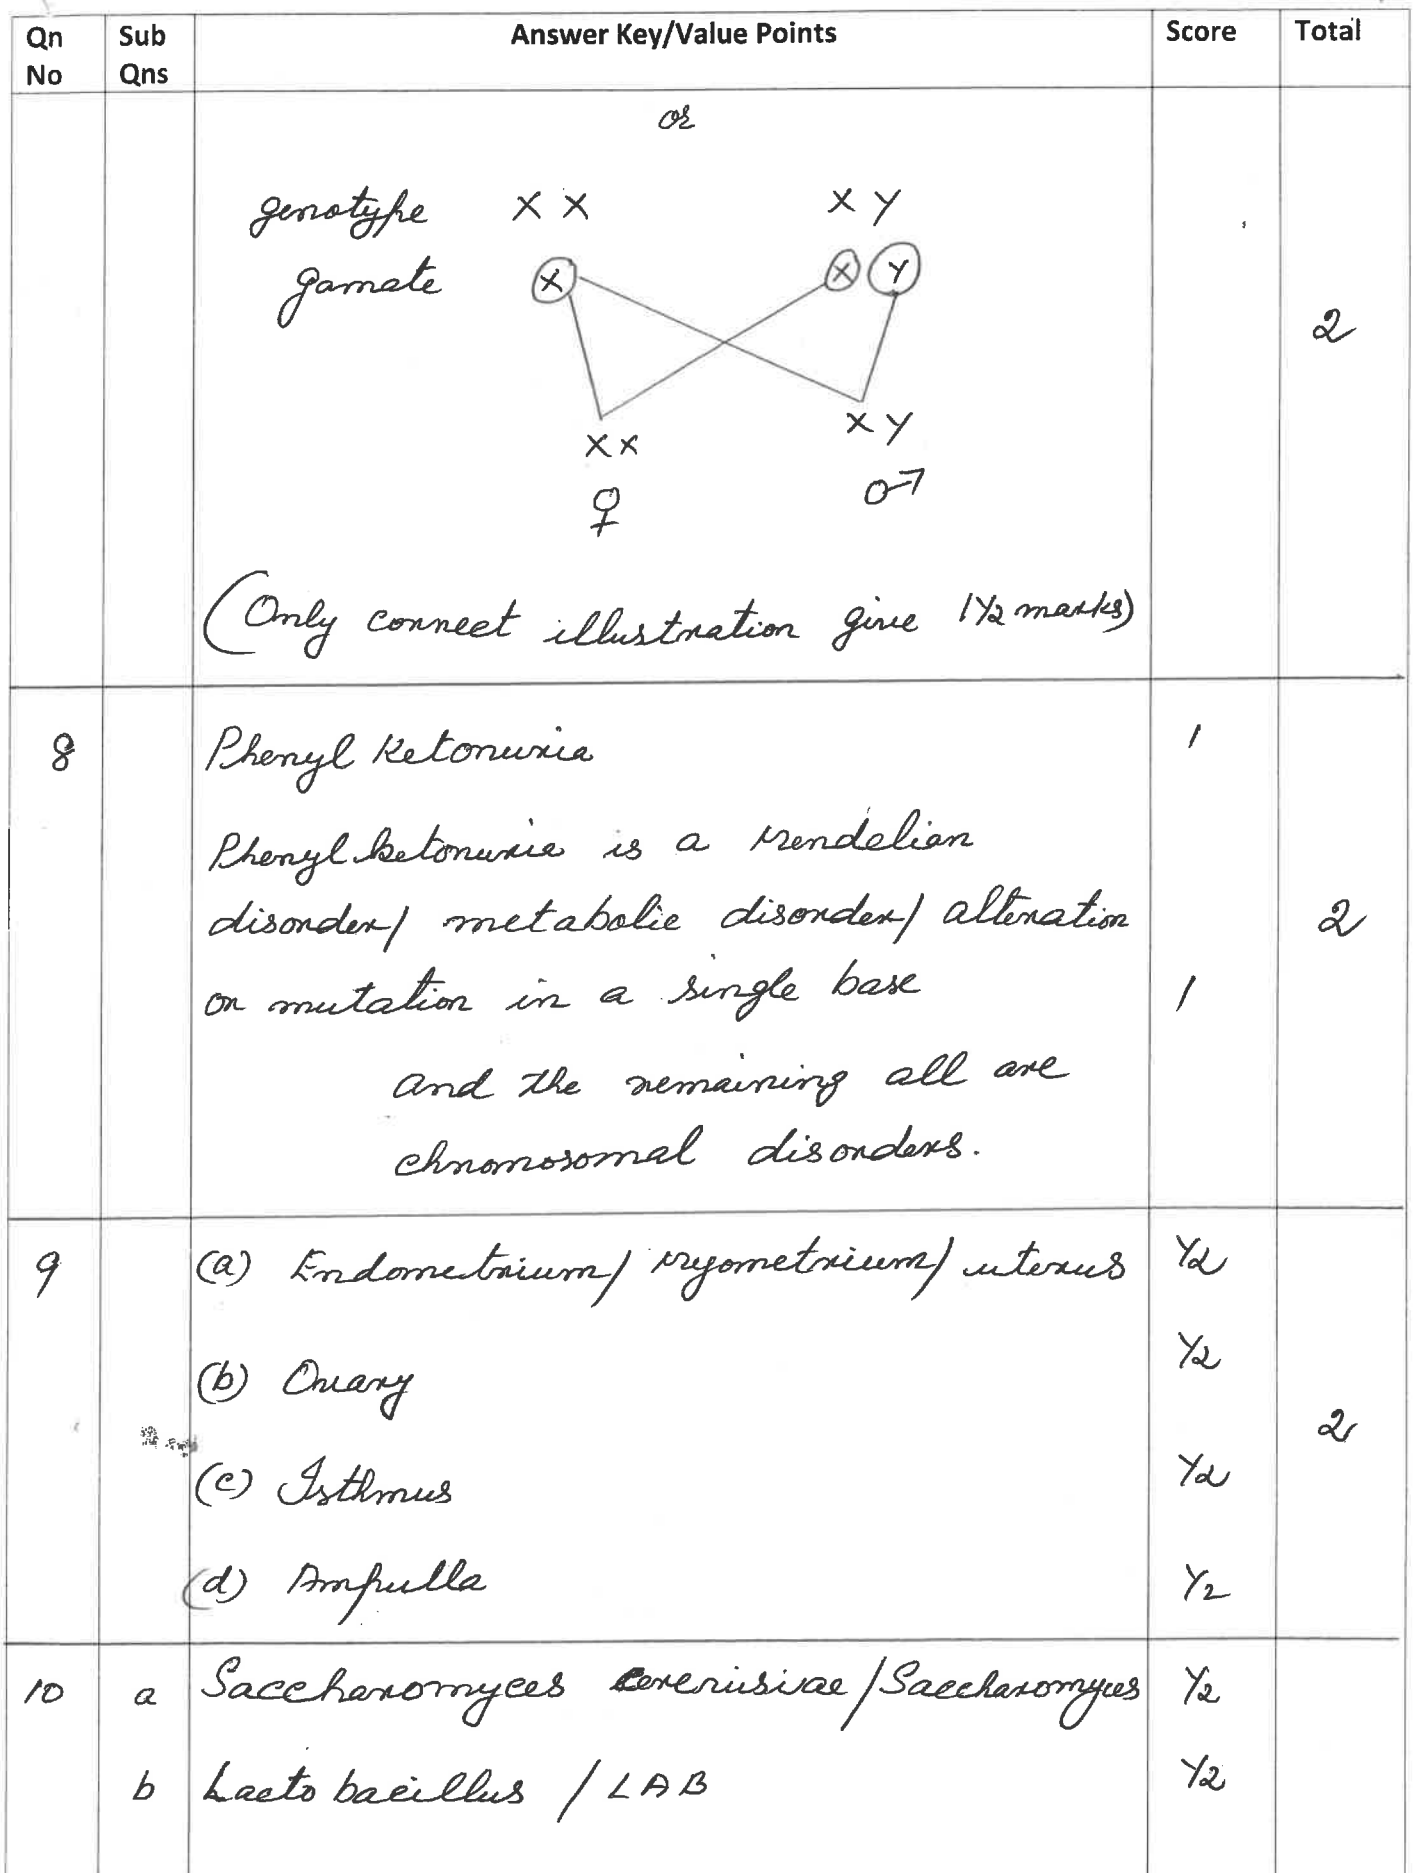 Qn No Sub Qns Answer Key/Value Points Score Total
or
genotype X X X Y
gamate X X Y
2
XX XY
♀ ♂
(Only correct illustration give 1½ marks)
8 Phenyl Ketonuria 1
Phenyl ketonuria is a Mendelian
disorder/ metabolic disorder/ alteration 2
or mutation in a single base 1
and the remaining all are
chromosomal disorders.
9 (a) Endometrium/ Myometrium/ uterus ½
(b) Ovary ½
2
(c) Isthmus ½
(d) Ampulla ½
10 a Saccharomyces cerevisiae/Saccharomyces ½
b Lacto bacillus / LAB ½